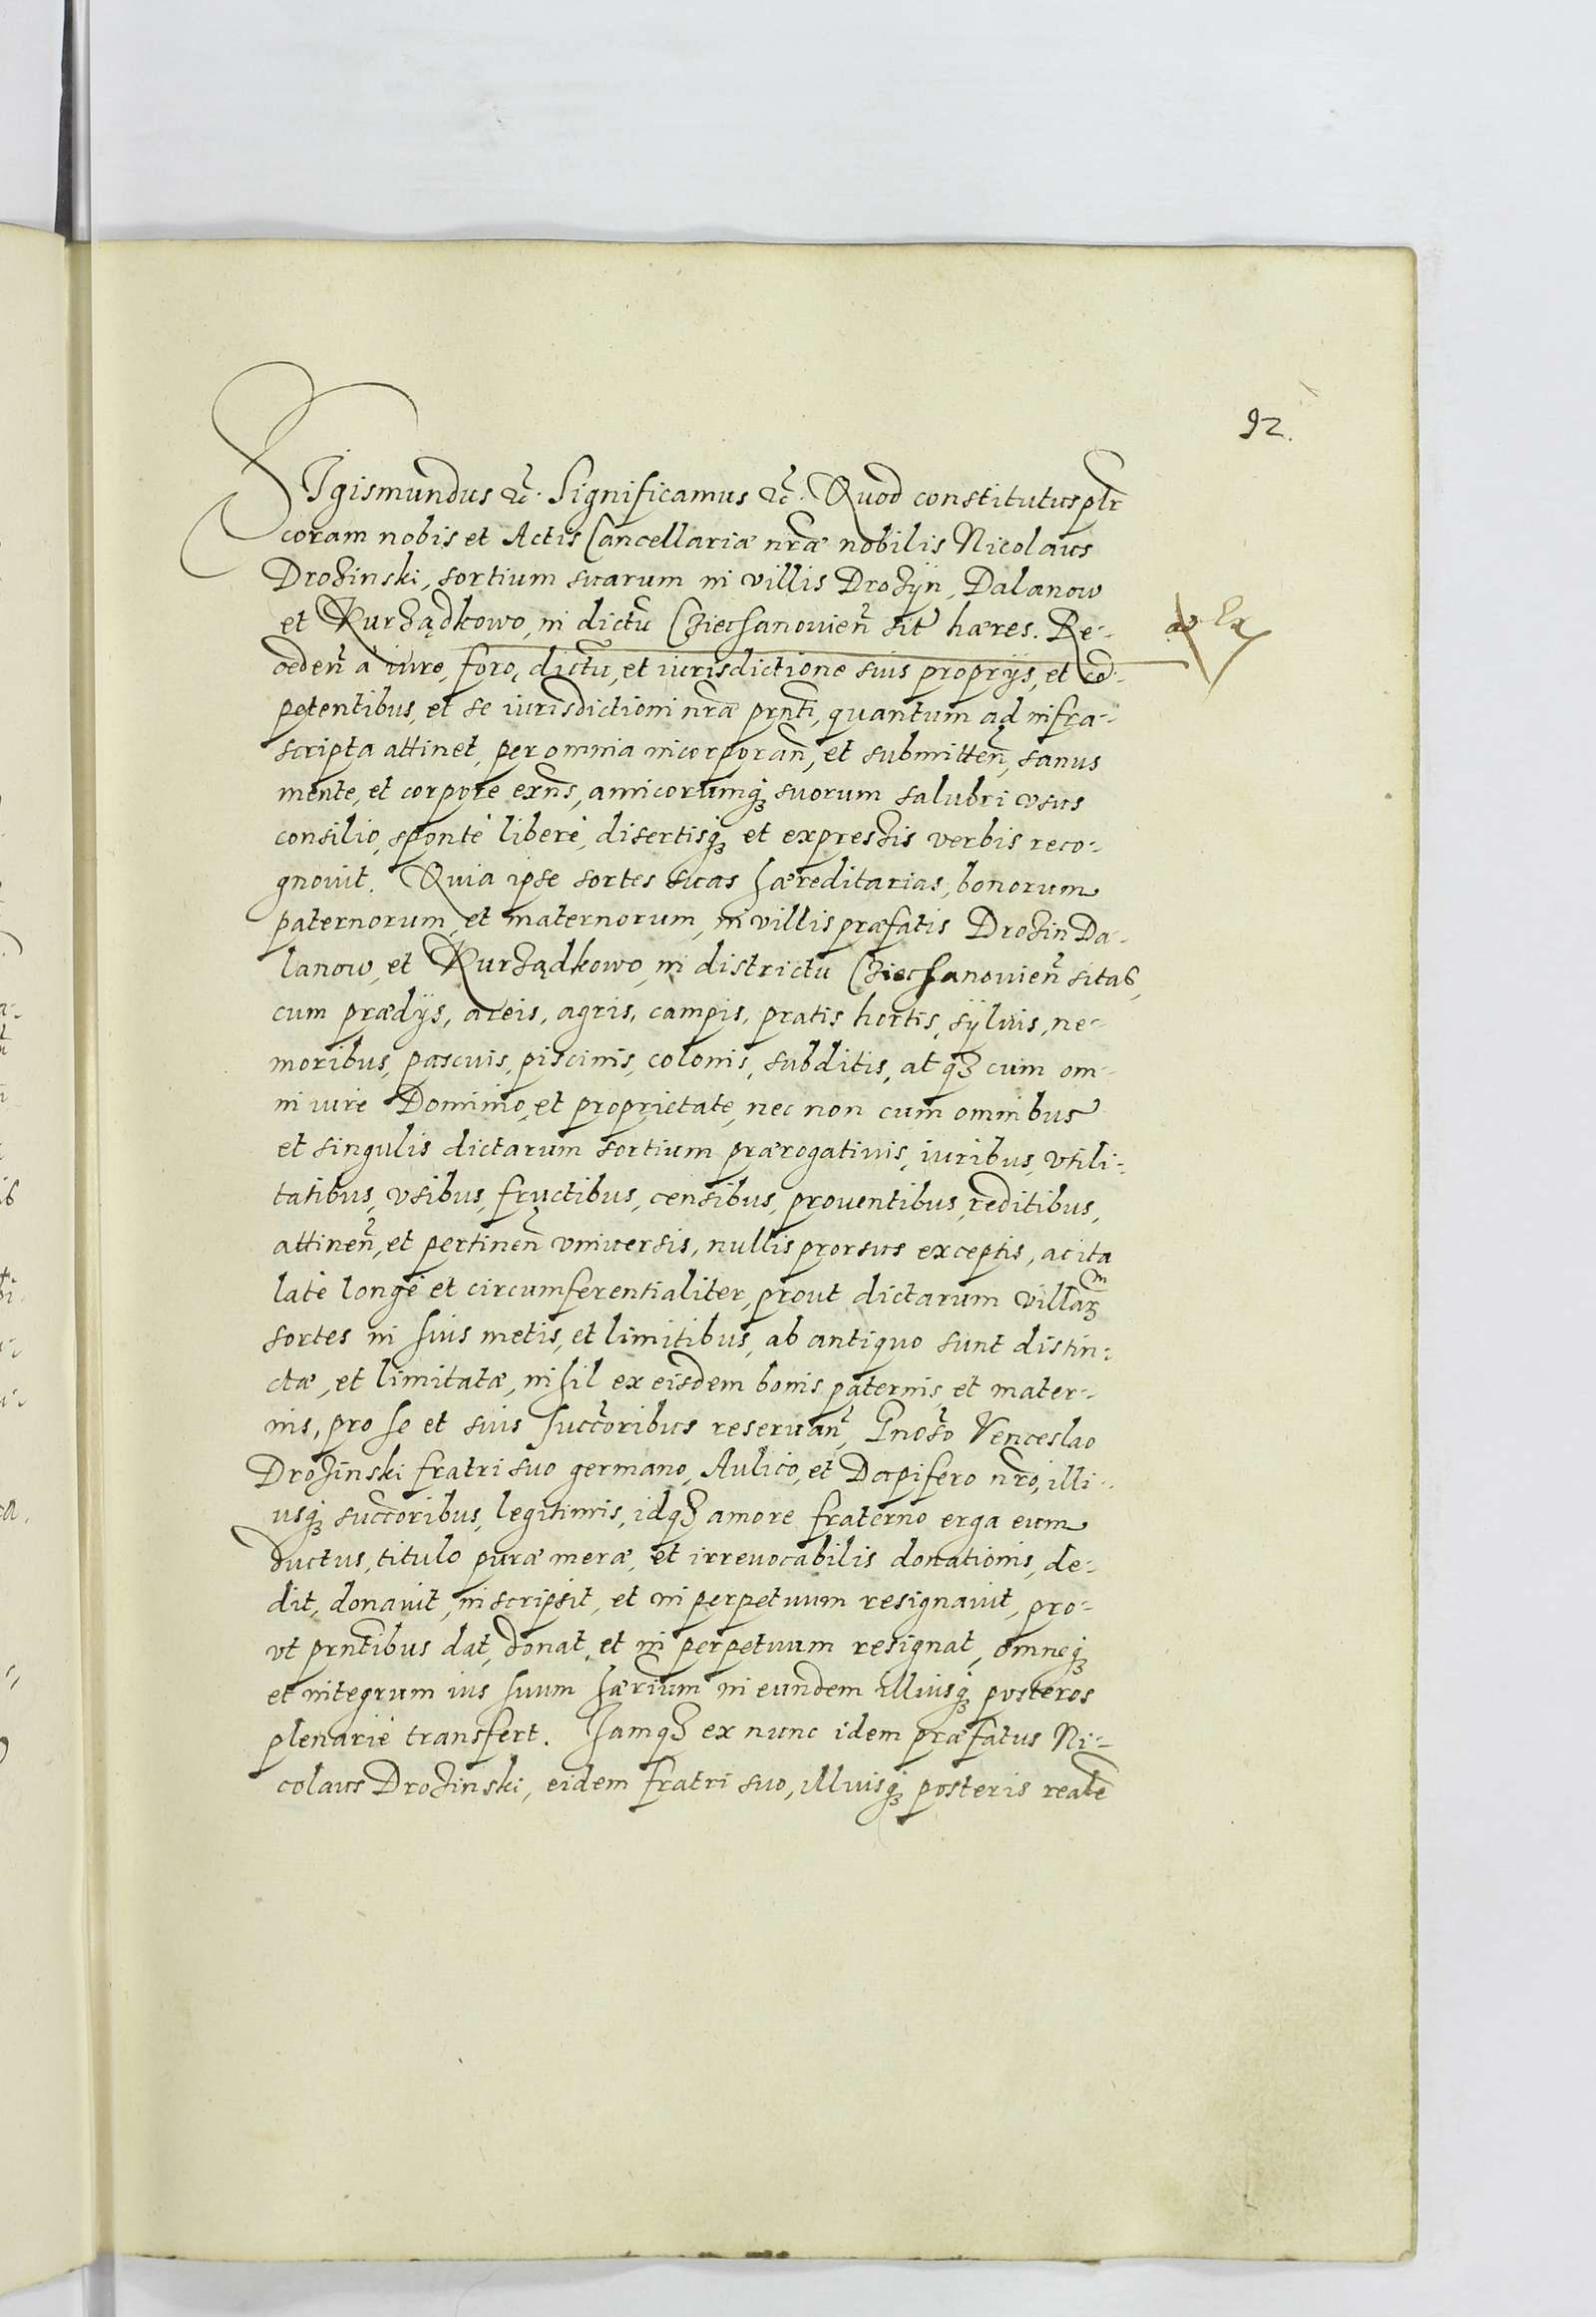 92.
Sigismundus &c̃. Significamus &c̃. Quod constitutus plr̃
coram nobis et Actis Cancellariæ nr̃æ nobilis Nicolaus
Drozinski, sortium suarum in villis Drozyn, Dalanow
et Kurządkowo, in dictũ Cziechanouieñ sit hæres. Re-
cedeñ à iure, foro, dictũ, et iurisdictione suis proprijs, et cõ-
petentibus, et se iurisdictioni nr̃æ prñti, quantum ad infra-
scripta attinet, per omnia incorporañ, et submitteñ, sanus
mente, et corpore exñs, amicorumq; suorum salubri vsus
consilio, spontè liberè, disertisq; et expressis verbis reco-
gnouit. Quia ipse sortes suas hæreditarias, bonorum
paternorum, et maternorum, in villis præfatis Drozin Da-
lanow, et Kurządkowo, in districtu Cziechanouieñ sitas,
cum prædijs, areis, agris, campis, pratis hortis, syluis, ne-
moribus, pascuis, piscinis, colonis, subditis, atq; cum om-
ni iure Dominio, et proprietate, nec non cum omnibus
et singulis dictarum sortium prærogatiuis, iuribus, vtili-
tatibus, vsibus, fructibus, censibus, prouentibus, reditibus,
attineñ, et pertineñ vniuersis, nullis prorsus exceptis, ac ita
latè longè et circumferentialiter, prout dictarum villaꝝ
sortes in suis metis, et limitibus, ab antiquo sunt distin-
ctæ, et limitatæ, nihil ex eisdem bonis paternis, et mater-
nis, pro se et suis succ̃oribus reseruañ, Gnoso Venceslao
Drozinski fratri suo germano, Aulico, et Dapifero nr̃o, illi-
usq; succ̃oribus, legitimis, idq; amore fraterno erga eum
ductus, titulo puræ meræ, et irreuocabilis donationis, de-
dit, donauit, inscripsit, et in perpetuum resignauit, pro-
ut prñtibus dat, donat, et in perpetuum resignat, omneq;
et integrum ius suum hær̃ium in eundem illiusq; posteros
plenariè transfert. Iamq; ex nunc idem præfatus Ni-
colaus Drozinski, eidem fratri suo, illiusq; posteris realẽ